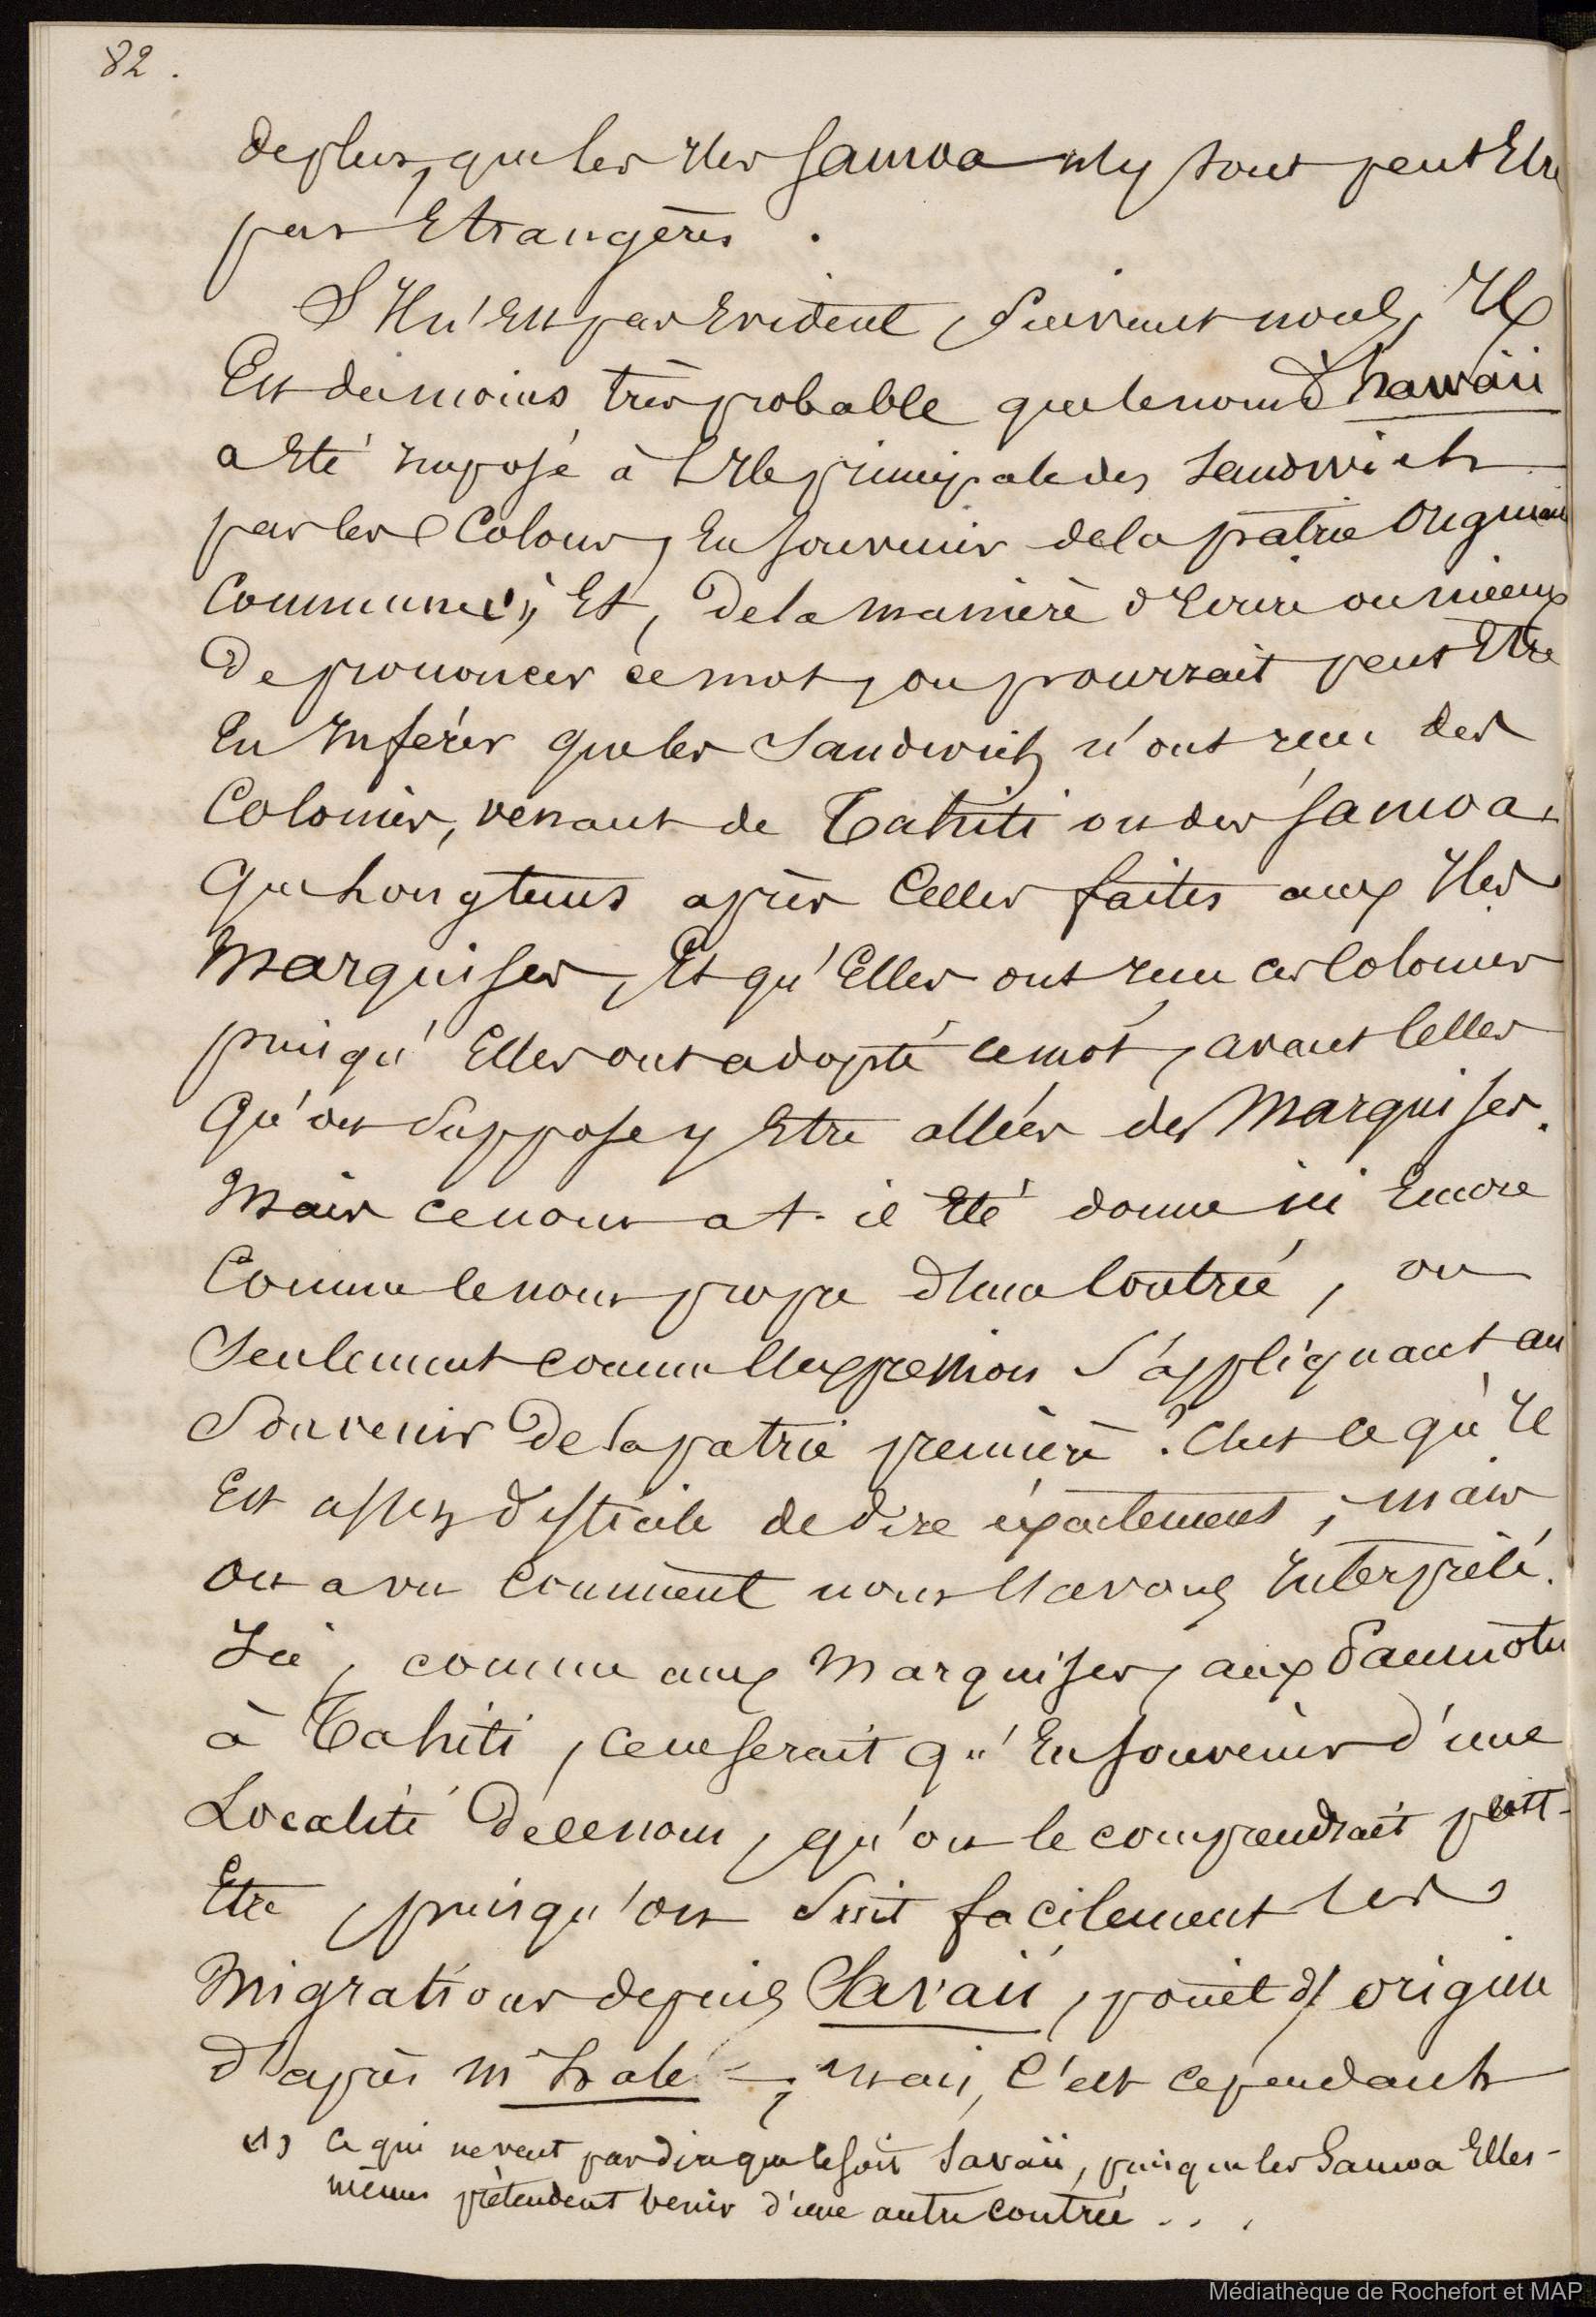 82.
de plus, que les Iles Samoa n'y sont peut Etre
pas Etrangères.
S'Il n'Est pas Evident, suivant nous, Il
Est du moins très probable que le nom d'hawaii
a Eté imposé à l'Ile principale des Sandwich
par les Colons, En souvenir de la patrie Originaire
Commune; Et, de la manière d'Ecrire ou mieux
de prononcer ce mot, on pourrait peut Etre
En Inférer que les Sandwich n'ont reçu des
Colonies, venant de Tahiti ou des Samoa,
que Longtems après Celles faites aux Iles
Marquises, Et qu'Elles ont reçu ces Colonies
puisqu'Elles ont adopté ce mot, avant Celles
qu'on suppose y Etre allées des Marquises.
Mais ce nom a t-il Eté donné ici Encore
Comme le nom propre d'une Contrée, ou
Seulement comme l'Expression s'appliquant au
Souvenir de la patrie première? C'est ce qu'Il
Est assez difficile de dire exactement; mais
on a vu Comment nous l'avons Interprété.
Ici, comme aux Marquises, aux Paumotu
à Tahiti, ce ne serait qu'En souvenir d'une
Localité de ce nom, qu'on le comprendrait peut-
Etre, puisqu'on suit facilement les
Migrations depuis Savaii, point d'origine
d'après Mr hale; mais, c'est cependant
(1) Ce qui ne veut pas dire que ce soit Savaii, puisque les Samoa Elles-
mêmes prétendent venir d'une autre contrée...
Médiathèque de Rochefort et MAP